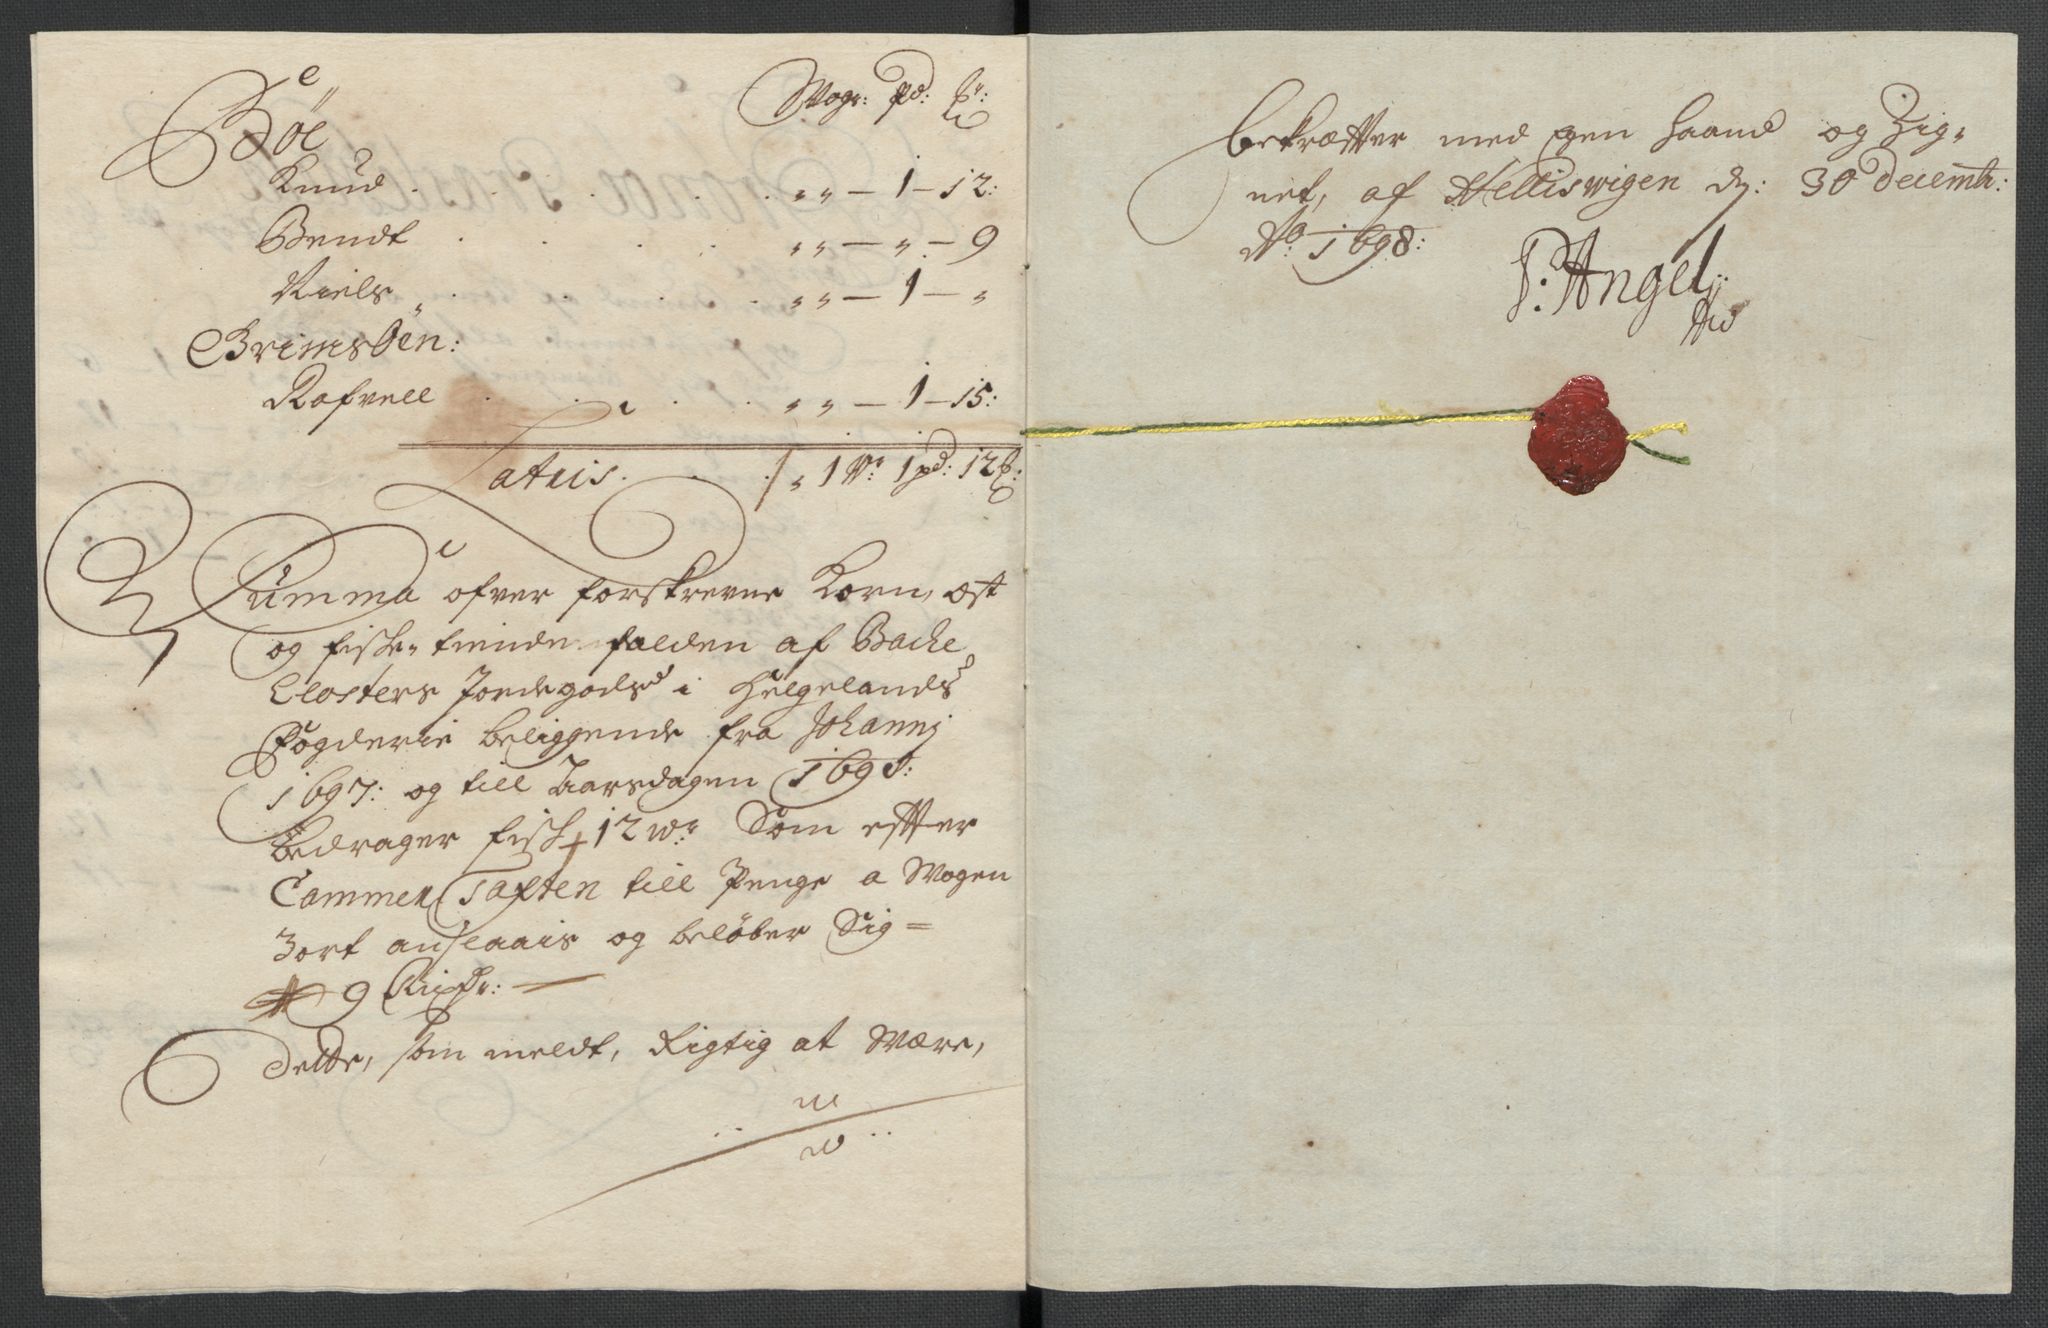 Wogr: Pd: ℔r:
Böe
Knud . . . . „ „ — 1 — 12:
Bendt . . . . „ „ — „ — 9
Niels . . . . „ „ — 1 — „
Brimsöen:
Rafvell . . . . „ „ — 1 — 15:
Latus . . . „ 1 W: 1 pd: 12 ℔:
Summa ofver forskrevne Korn, ost
og fiske-tiende falden af Backe
Closters Jordegods i Helgelands
Fogderie beliggende fra Johannj
1697: og till Aarsdagen 1698:
bedrager fisk 12 W: Som efter
Cammer Taxten till Penge a Wogen
3 ort anslaais og beløber Sig =
9 Rixdr: —
Dette, som meldt, Rigtig at Være,
bekræffter med egen haand og Zig-
net, af Helliswigen dj: 30 decembr:
Ao: 1698:
P: Angel